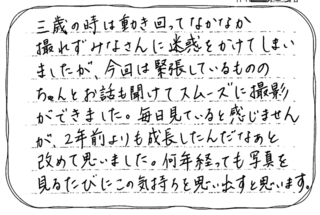 三歳の時は動き回ってなかなか
撮れずみなさんに迷惑をかけてしまい
ましたが、今回は緊張しているものの
ちゃんとお話も聞けてスムーズに撮影
ができました。毎日見ていると感じません
が、2年前よりも成長したんだなぁと
改めて思いました。何年経っても写真を
見るたびにこの気持ちを思い出すと思います。